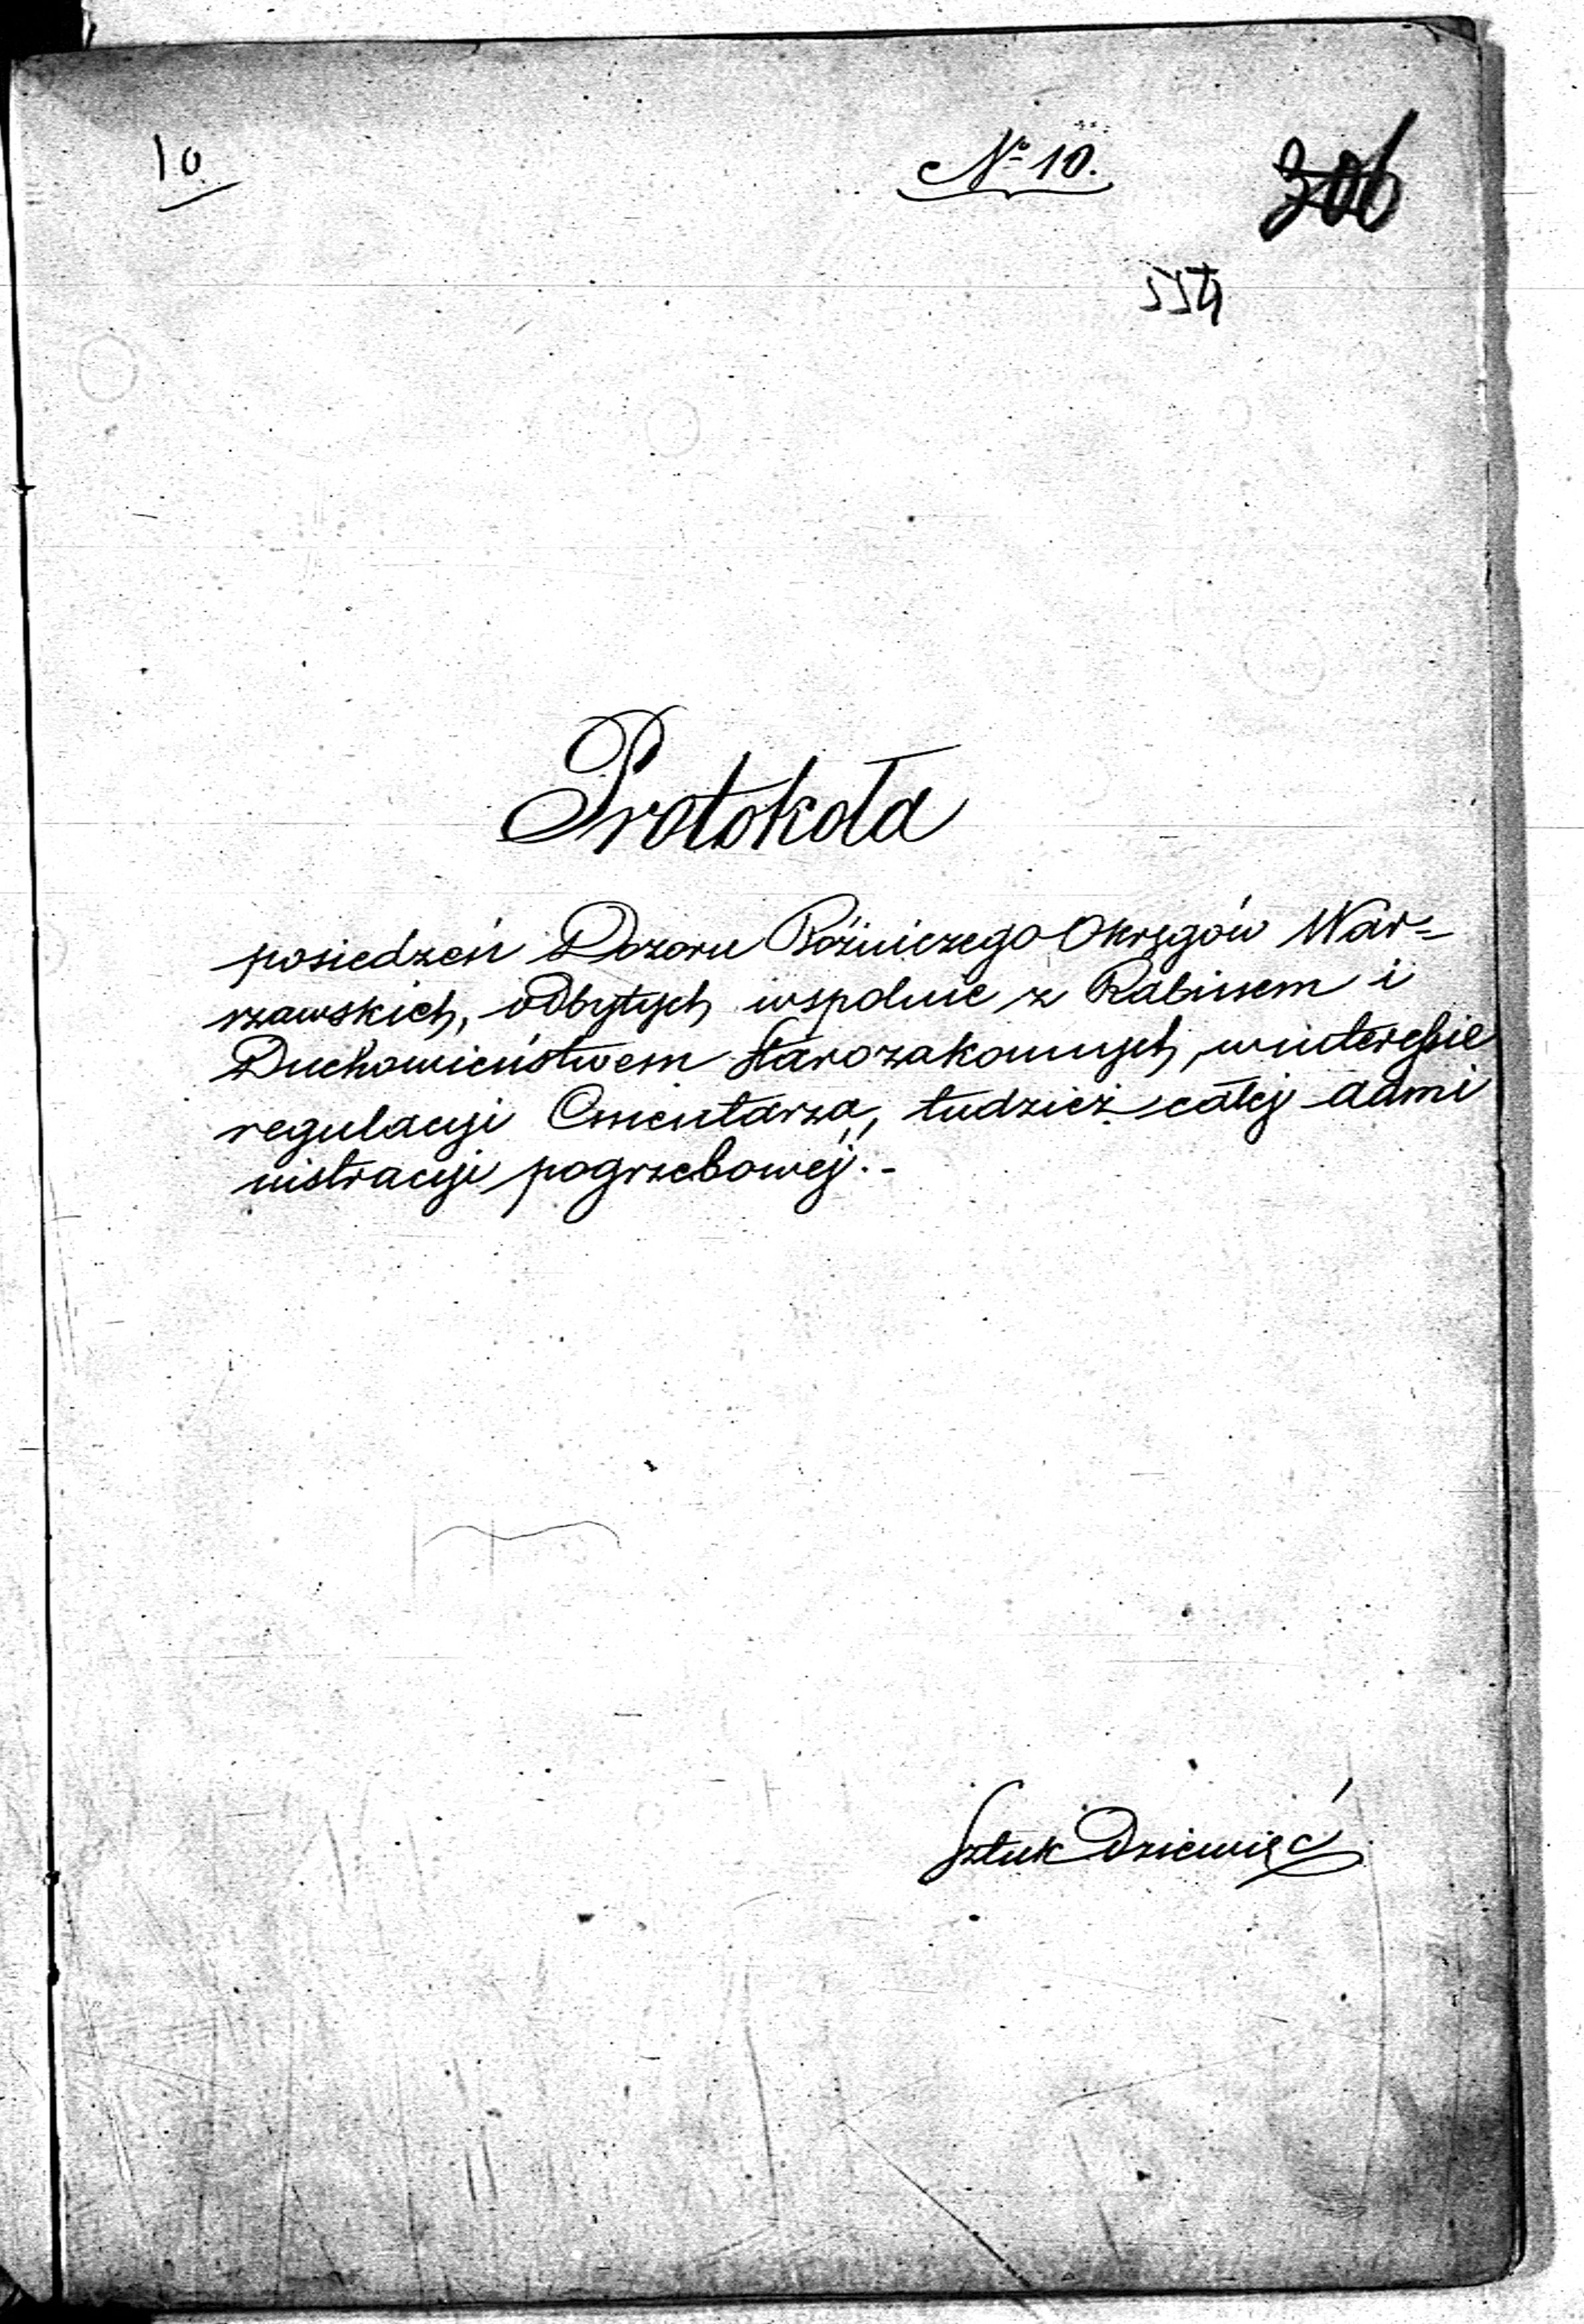 10
№ 10.
306
Protokoła
posiedzeń Dozoru Bóźniczego Okręgów War=
rzawskich, odbytych wspolnie z Rabinem i
Duchowieństwem Starozakonnych, w interessie
regulacyi Cmentarza, tudzież całéj admi
nistracyi pogrzebowéj.-
Sztuk Dziewięć